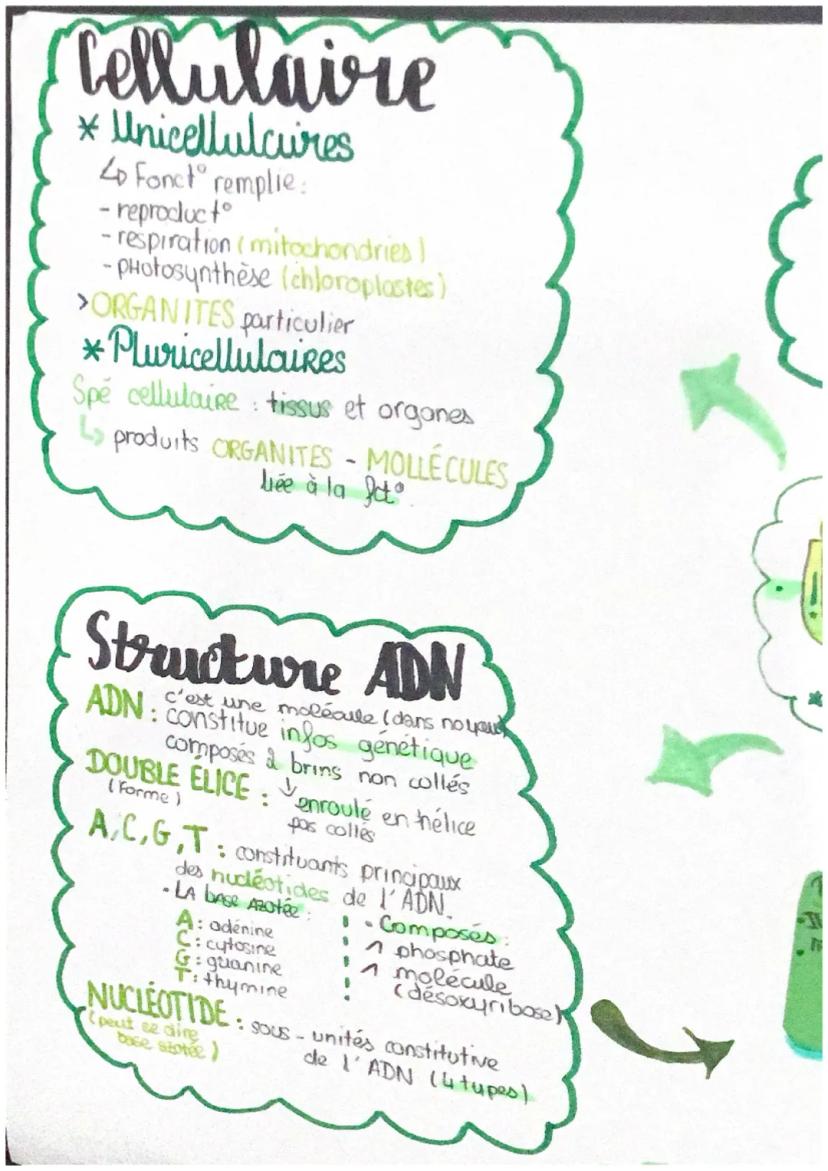 Cellulaire
* Unicellulaires
↳ Fonct° remplie :
- reproduct°
- respiration (mitochondries)
- photosynthèse (chloroplastes)
> ORGANITES particulier
* PluricellulaiRes
Spé cellulaire : tissus et organes
↳ produits ORGANITES - MOLLÉCULES
liée à la fct°
Structure ADN
ADN : c'est une molécule (dans noyau)
constitue infos génétique
composés 2 brins non collés
DOUBLE ÉLICE : enroulé en hélice
(forme)
pas collés
A, C, G, T : constituants principaux
des nucléotides de l'ADN.
• LA base AZOTÉE :
A : adénine
C : cytosine
G : guanine
T : thymine
• Composés :
1 phosphate
1 molécule
(désoxyribose)
NUCLÉOTIDE : sous-unités constitutive
(peut se dire
base azotée)
de l'ADN (4 types)